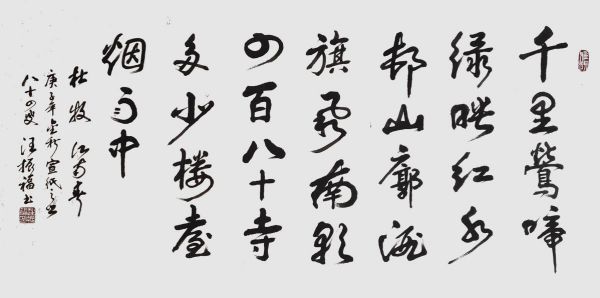 千里鶯啼
绿暎红水
邨山廓酒
旗风南朝
四百八十寺
多少楼臺
烟雨中
杜牧 江南春
庚子年金秋宣纸之乡
八十四叟 汪振福书